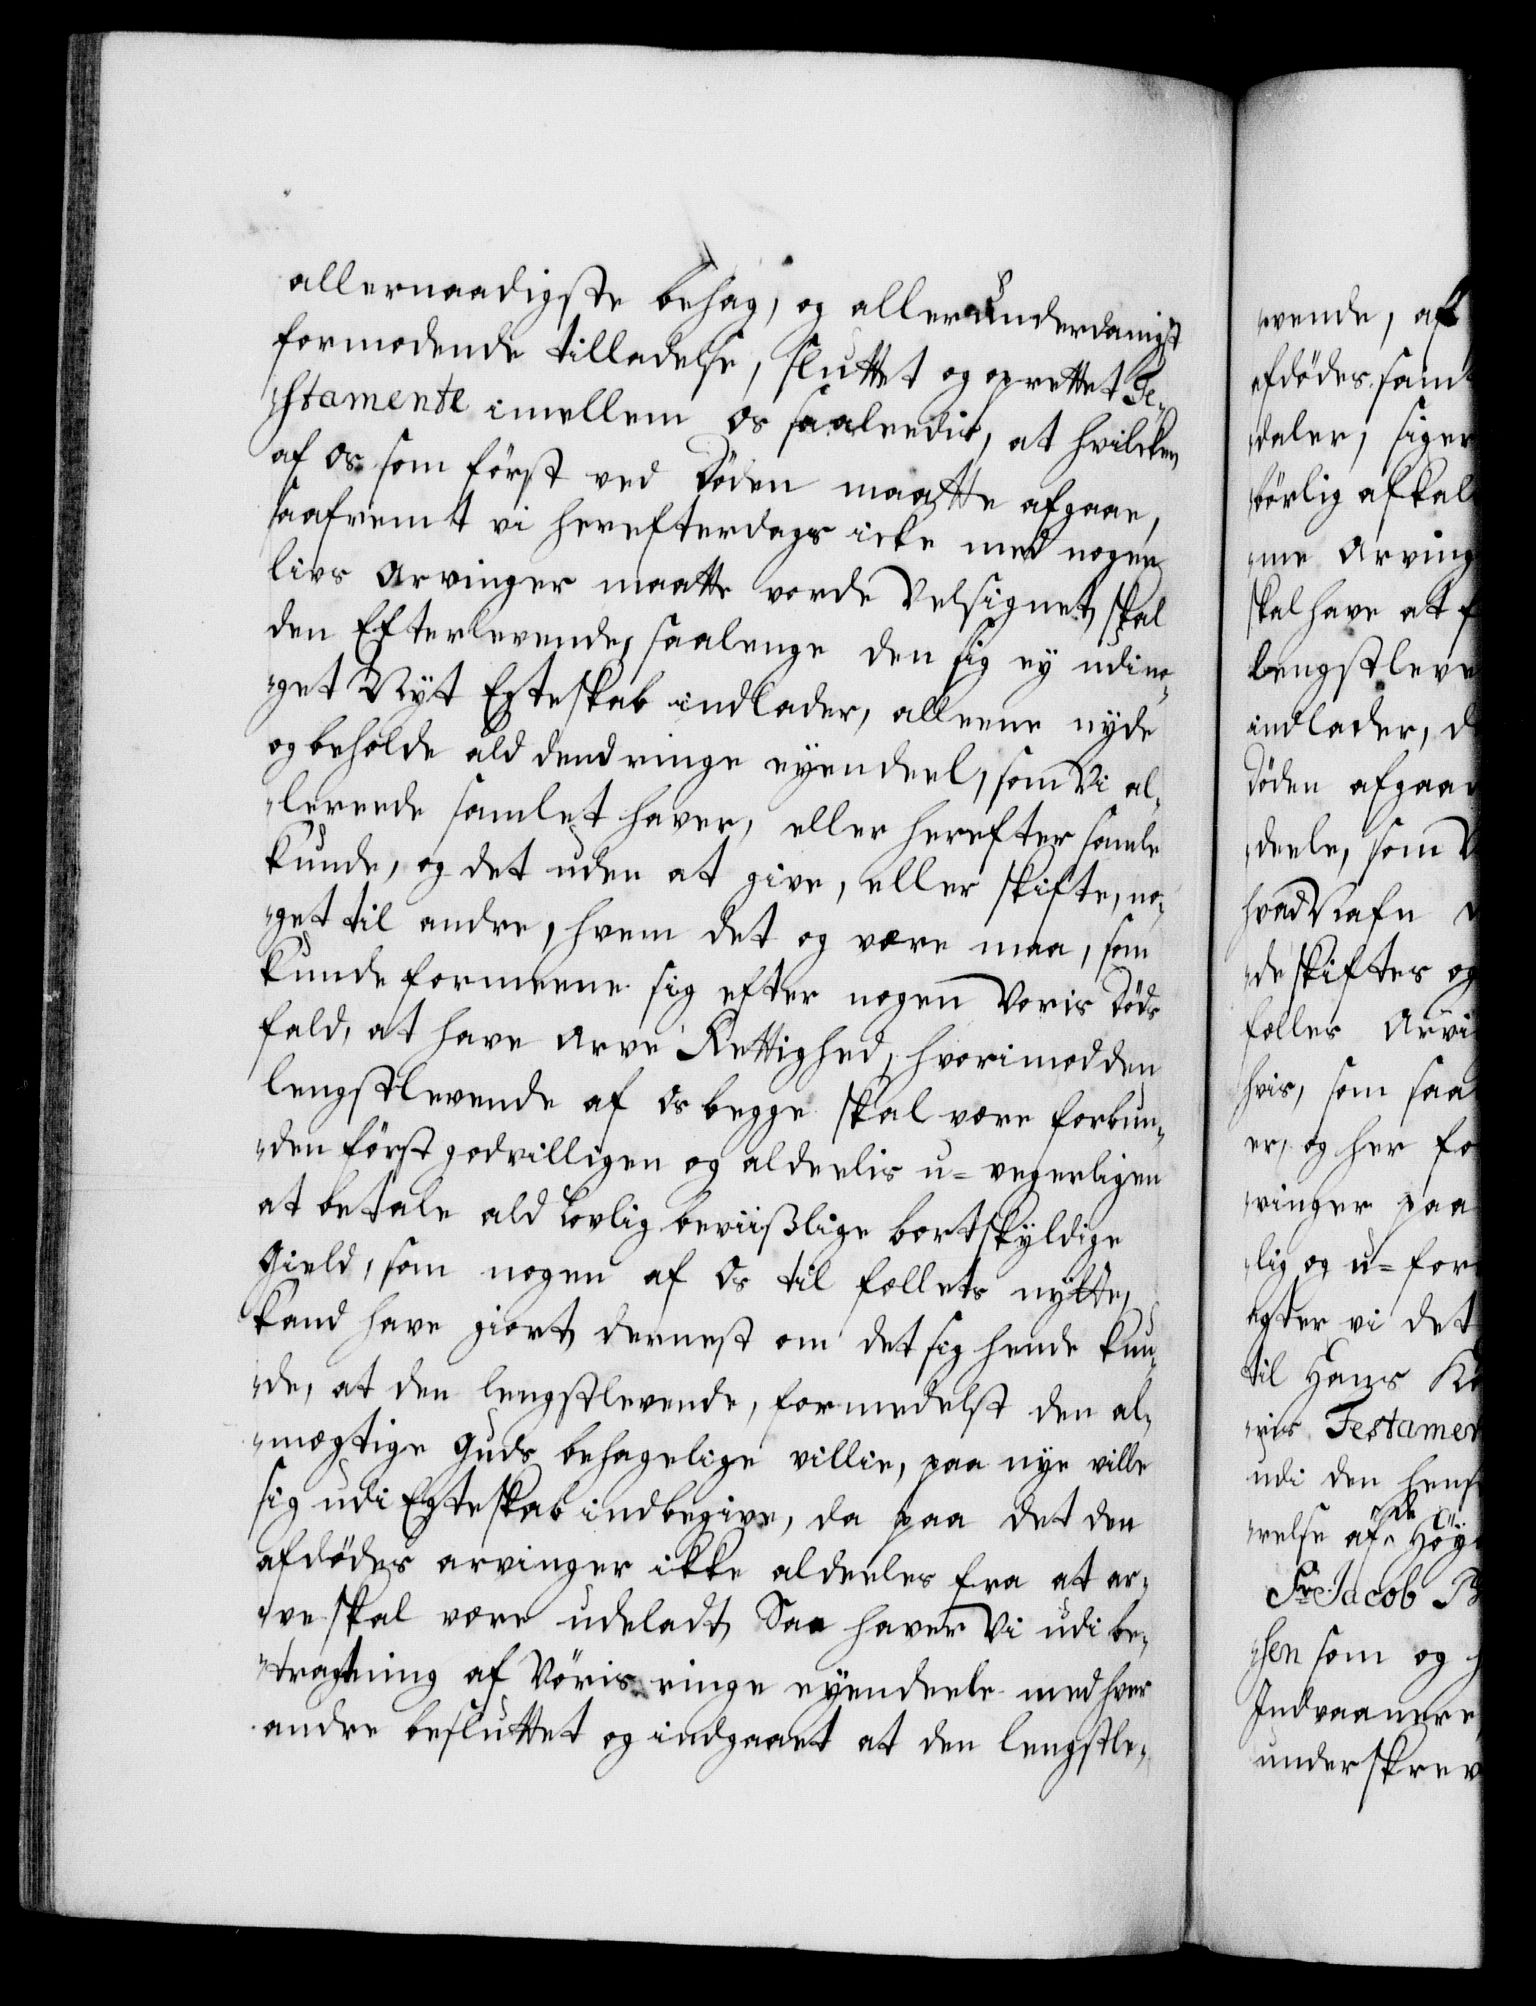 allernaadigste behag, og allerunderdanigst
formodende tilladelse, sluttet og oprettet Te„
„stamente imellem os saaleedis, at hvilcken
af os som först ved Döden maatte afgaae,
saafremt vi herefterdags icke med nogen
livs Arvinger maatte vorde Velsignet, skal
den Efterlevende, saalenge den sig ey udi no„
„get Nyt Egteskab indlader, alleene nyde
og beholde ald dend ringe eyendeel, som Vi al„
„lereede samlet haver, eller herefter samle
kunde, og det uden at give, eller skifte, no„
„get til andre, hvem det og være maa, som
kunde formeene sig efter nogen Voris Döds
fald, at have Arve Rettighed, hvorimod den
lengstlevende af os begge skal være forbun„
„den först godvilligen og aldeelis u=vegerligen
at betale ald lovlig beviißlige bortskyldige
Gield, som nogen af Os til fællets nytte,
kand have giort, dernest om det sig hende kun„
„de, at den lengstlevende, formedelst den al„
„mægtige Guds behagelige villie, paa nye ville
sig udi Egteskab indbegive, da paa det den
afdödes arvinger ikke aldeeles fra at ar„
„ve skal være udeladt, Saa haver Vi udi be„
„tragtning af Voris ringe eyendeele med hver
andre besluttet og indgaaet at den lengstle„
„vende, af
afdödes samt
„daler, siger
börlig afkal
„me Arving
skal have at f
lengstleve
indlader, d
Döden afgaae
„deele, som V
hvad Nafn
„de skiftes og
fælles Arvi
hvis, som saa
er, og her fo
„vinger paa
„lig og u=for
agter vi det
til Hans Ko
„ris Testamen
udi den hens
„relse af de Höy
Sr: Jacob
„sen som og h
Indvaanere
underskrev